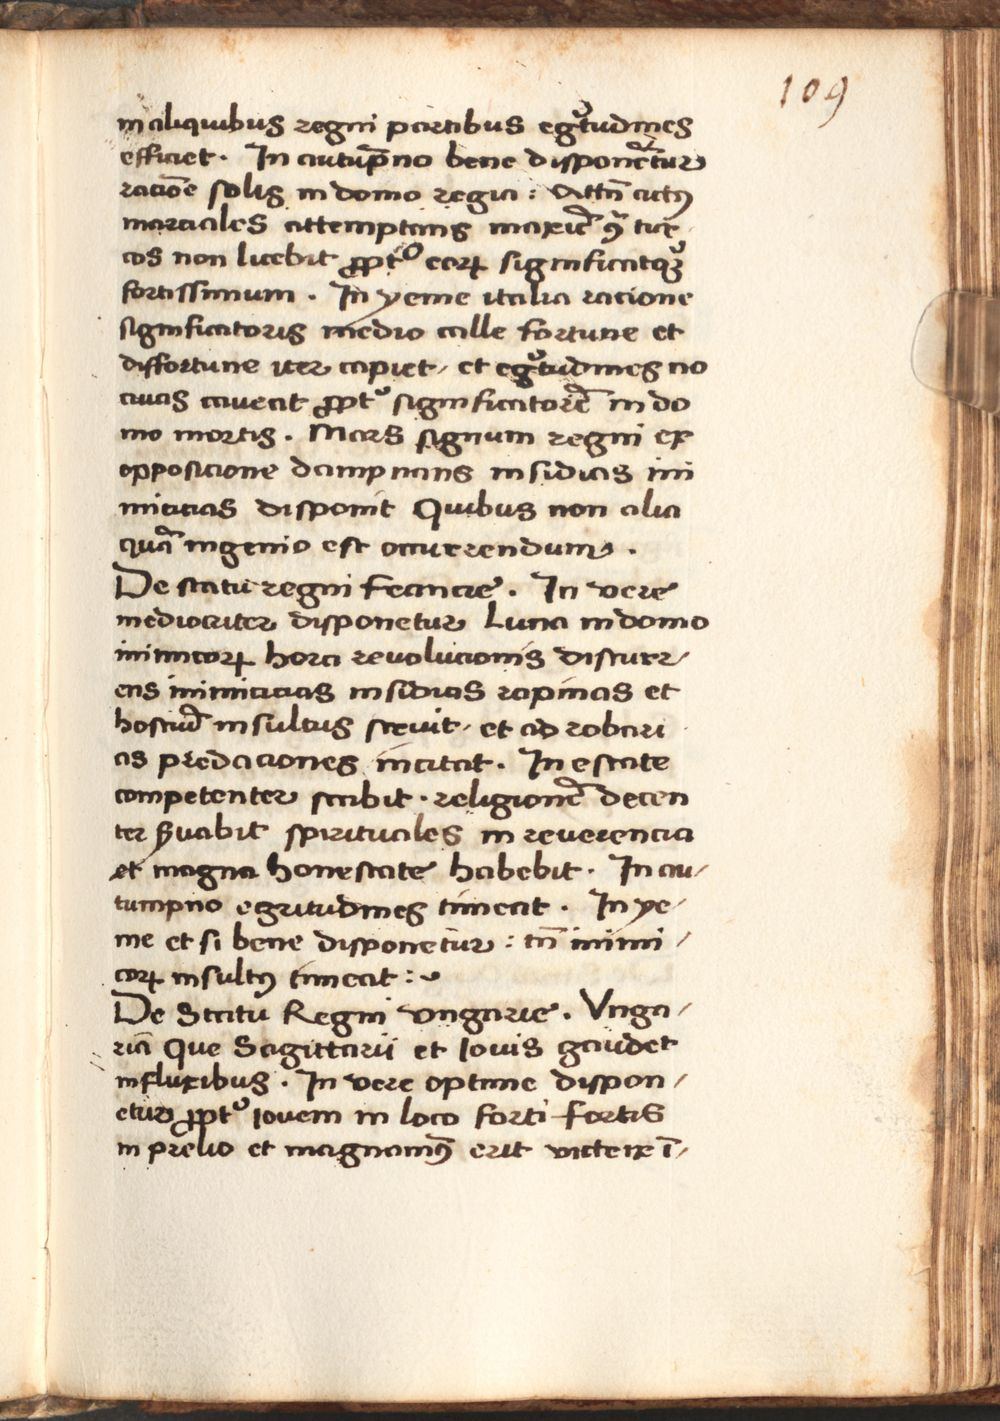 109
in aliquibus regni partibus egͥtudines
efficiet. In autūpno bene disponetur
racione solis in domo regia: actus
marciales attemptans
cos non licebit ꝓptͦ eoꝝ significatoꝝ
fortissimum. In yeme italia racione
significatoris medio calle fortune et
diffortune iter capiet, et egͥtudines no
civas caveat ꝓptͦ significatorē in do
mo mortis. Mars signum regni ex
opposicione dampnans insidias ini
micicias disponit Quibus non alia
quā ingenio est occurrendum.
De statu regni francie. In vere
mediocriter disponetur Luna in domo
inimicoꝝ hora revolucionis discurr/
ens inimicicias insidias rapinas et
hostiū insultus sciuit, et ad robari
as predaciones incitat. In estate
competenter stabit. religionē decen
ter ẜuabit spirituales in reverencia
et magna honestate habebit. In au/
tumpno egritudines timeat. In ye/
me et si bene disponetur: tn̄ inimi/
coꝝ insultꝰ timeat:
De Statu Regni vngarie. Vnga/
riā Que Sagittarii et Iovis gaudet
influxibus. In vere optime dispon/
etur ꝓptͦ iovem in loco forti fortis
in prelio et magnanimꝰ erit victrix ī/